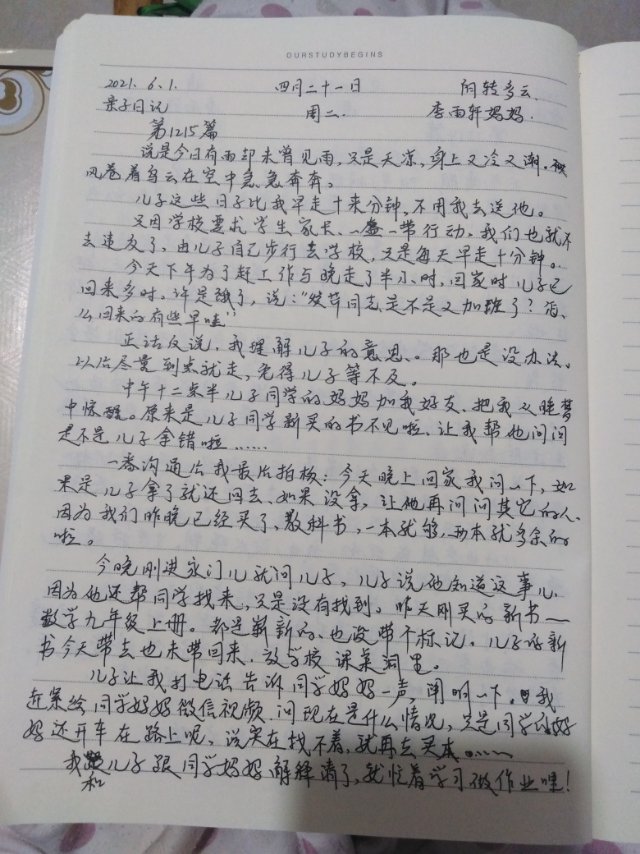 OURSTUDYBEGINS
2021.6.1. 四月二十一日 阴转多云.
亲子日记 周二. 李雨轩妈妈.
第1215篇
说是今日有雨却未曾见雨,又是天凉,身上又冷又潮.
风卷着乌云在空中急急奔奔。
儿子这些日子比我早走十来分钟,不用我去送他。
又因学校要求学生家长、一盔一带行动,我们也就不
去违反了,由儿子自己步行去学校,只是每天早走十分钟。
今天下午为了赶工作与晚走了半小时,回家时儿子已
回来多时。许是饿了,说:"发芽同志是不是又加班了?
么回来的有些早哇"
正话反说,我理解儿子的意思。那也是没办法。
以后尽量到点就走,免得儿子等不及。
中午十二点半儿子同学的妈妈加我好友、把我从睡梦
中惊醒。原来是儿子同学新买的书不见啦、让我帮他问问
是不是儿子拿错啦......
一番沟通后我最后拍板:今天晚上回家我问一下,如
果是儿子拿了就还回去、如果没拿,让他再问问其它的人.
因为我们昨晚已经买了,教科书,一本就够,两本就多余的
啦。
今晚刚进家门儿就问儿子,儿子说他知道这事儿.
因为他还帮同学找来,只是没有找到。昨天刚买的新书一
数学九年级上册。都是崭新的、也没带个标记。儿子的新
书今天带去也未带回来.放学校课桌洞里。
儿子让我打电话告诉同学妈妈一声,阐明一下。我
赶紧给同学妈妈微信视频.问现在是什么情况,只是同学的妈
妈还开车在路上呢,说实在找不着,就再去买本。......
我和儿子跟同学妈妈解释清了,就忙着学习做作业哇!